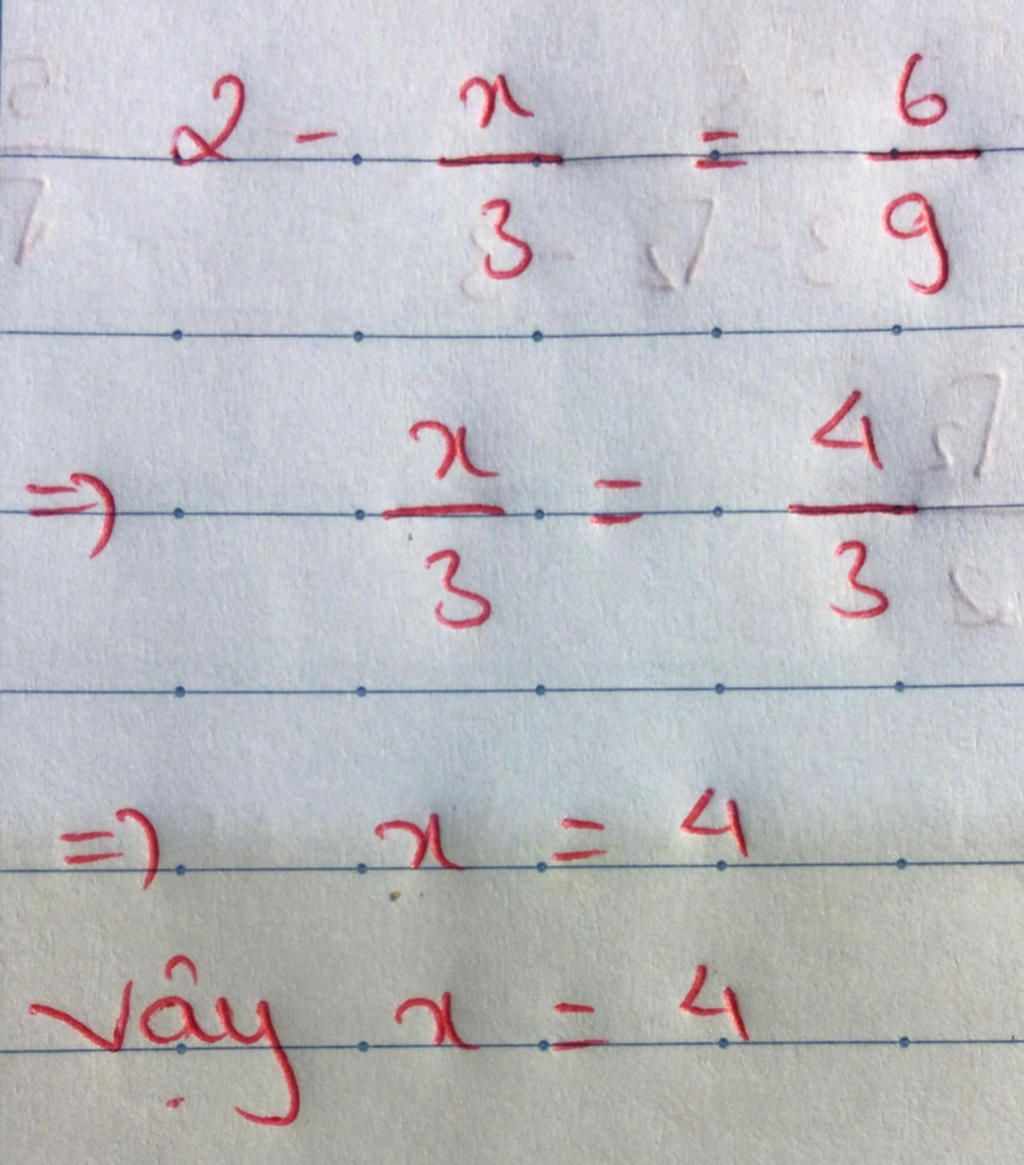 2 - x/3 = 6/9
=> x/3 = 4/3
=> x = 4
Vậy x = 4